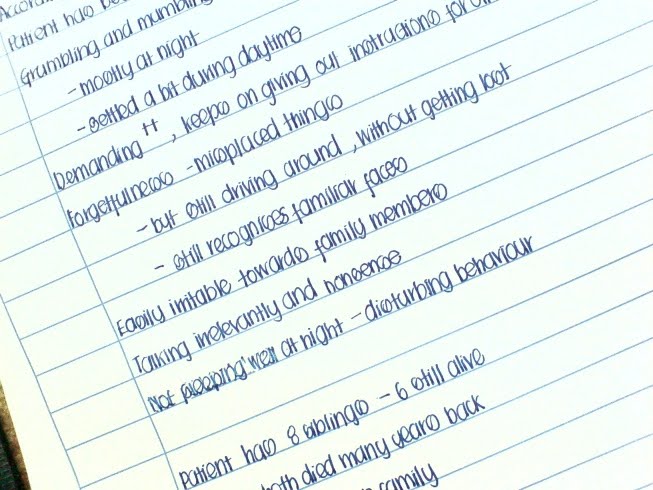 Patient has be
Grumbling and mumbling
- mostly at night
- settled a bit during daytime
Demanding ++, keeps on giving out instructions for
Forgetfulness - misplaced things
- but still driving around, without getting lost
- still recognises familiar faces
Easily irritable towards family members
Talking irrelevantly and nonsense
Not sleeping well at night - disturbing behaviour
Patient has 8 siblings - 6 still alive
both died many years back
family